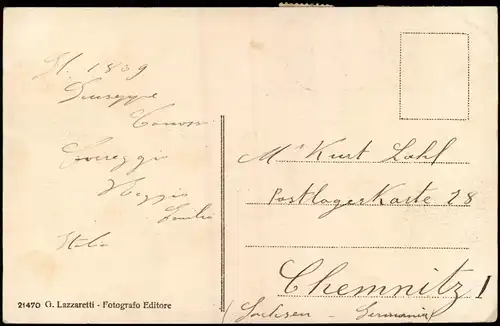 N. 1839
Giuseppe
Canossi
Correggio
Reggio
Emilia
Italia
Mr Kurt Lohl
Postlagerkarte 28
Chemnitz I
(Sachsen - Germania)
21470 G. Lazzaretti - Fotografo Editore